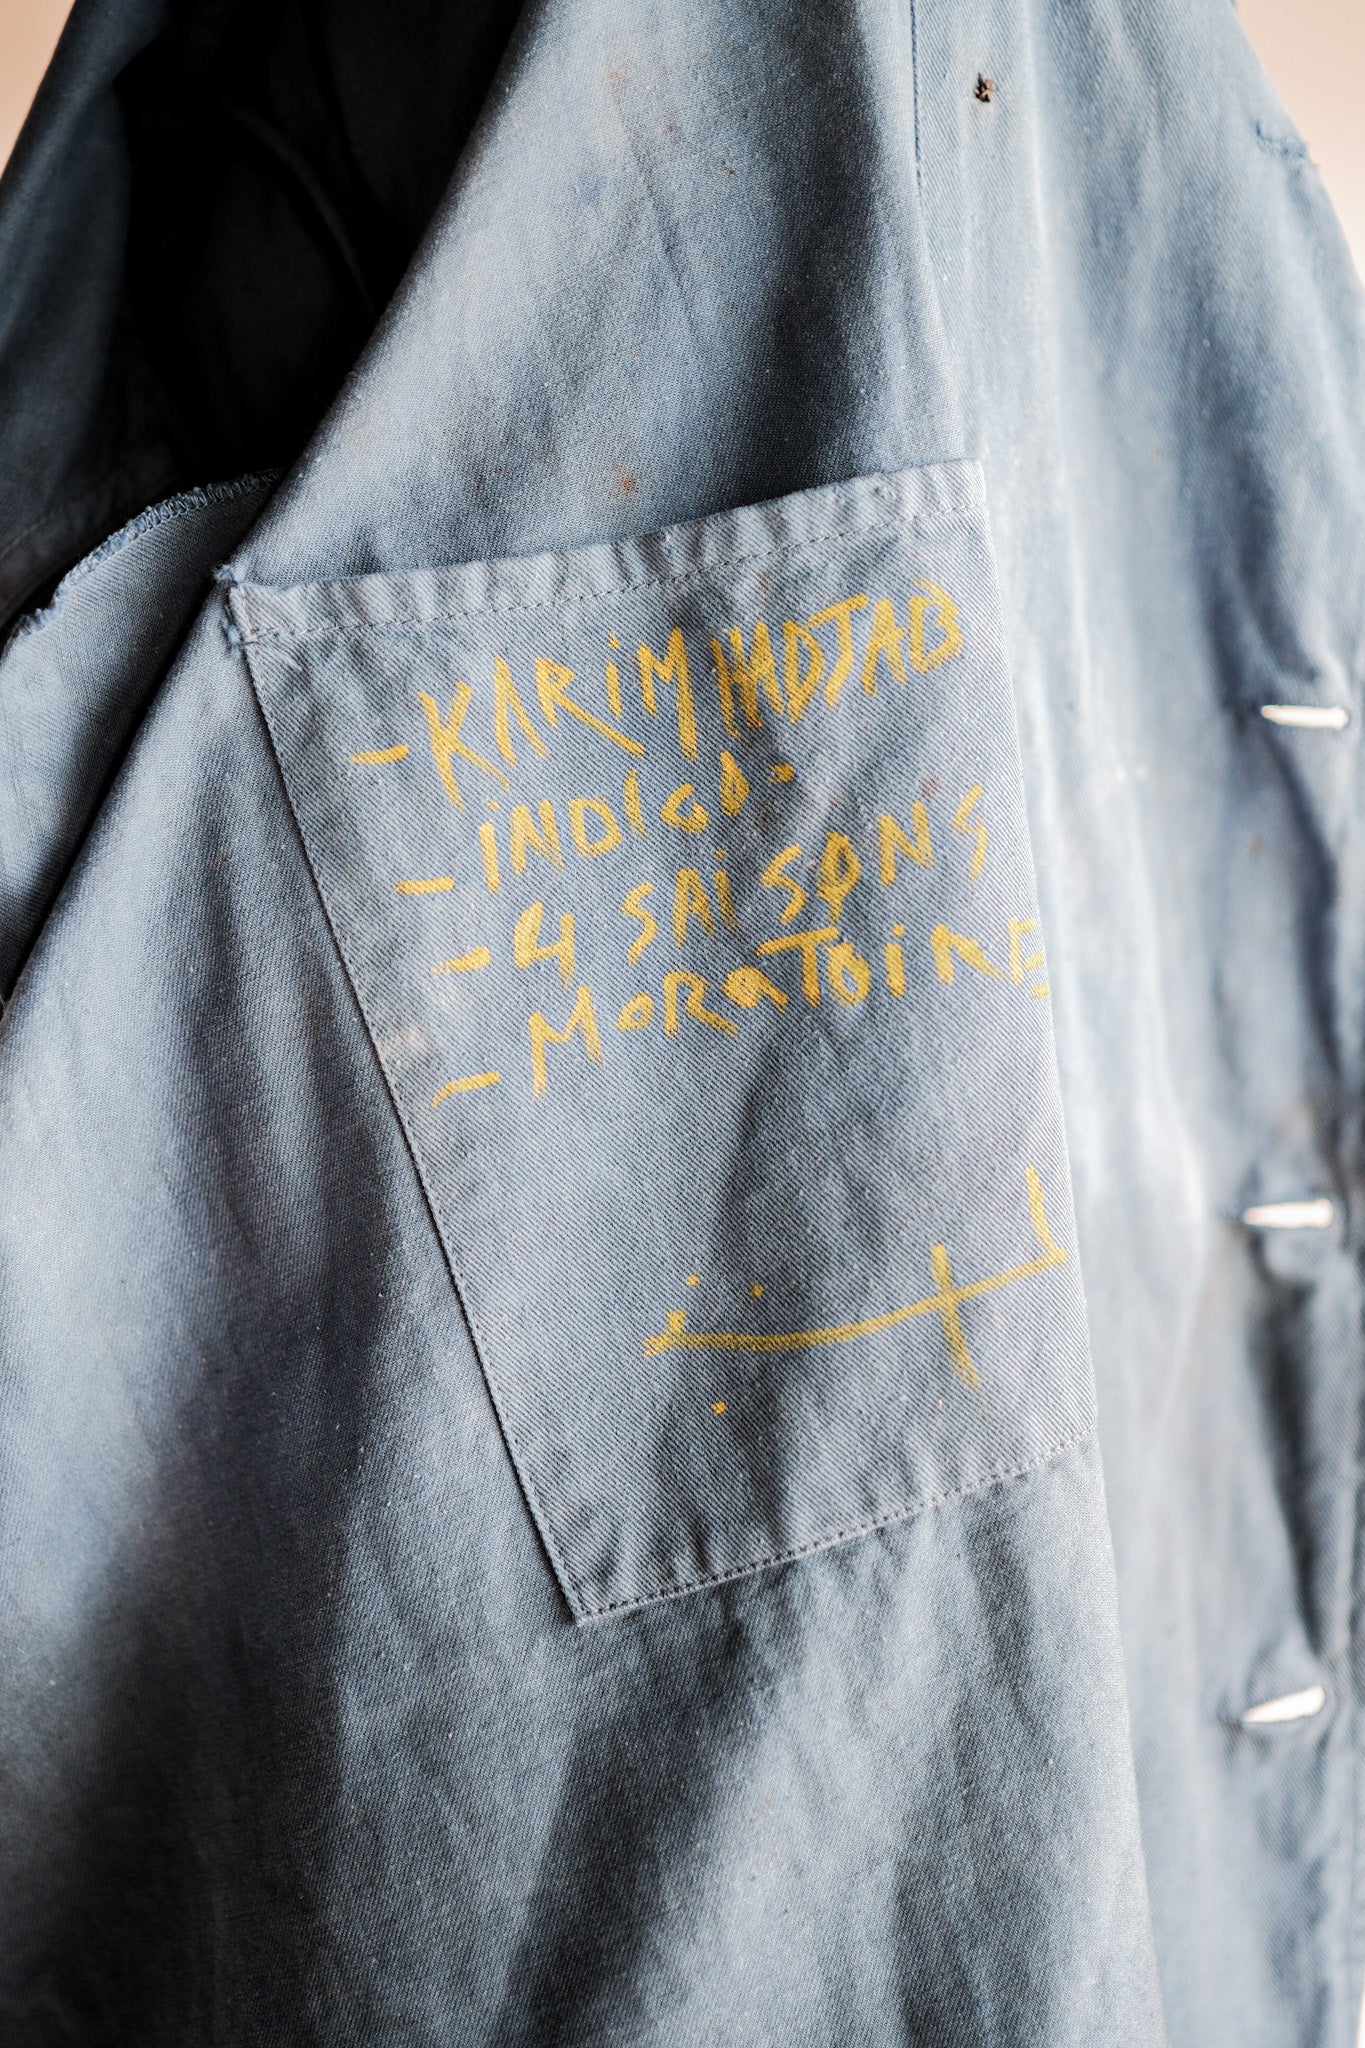 - KARiM HADJAB
- iNDiGO -
- 4 SAiSONS
- MORaTOiRE